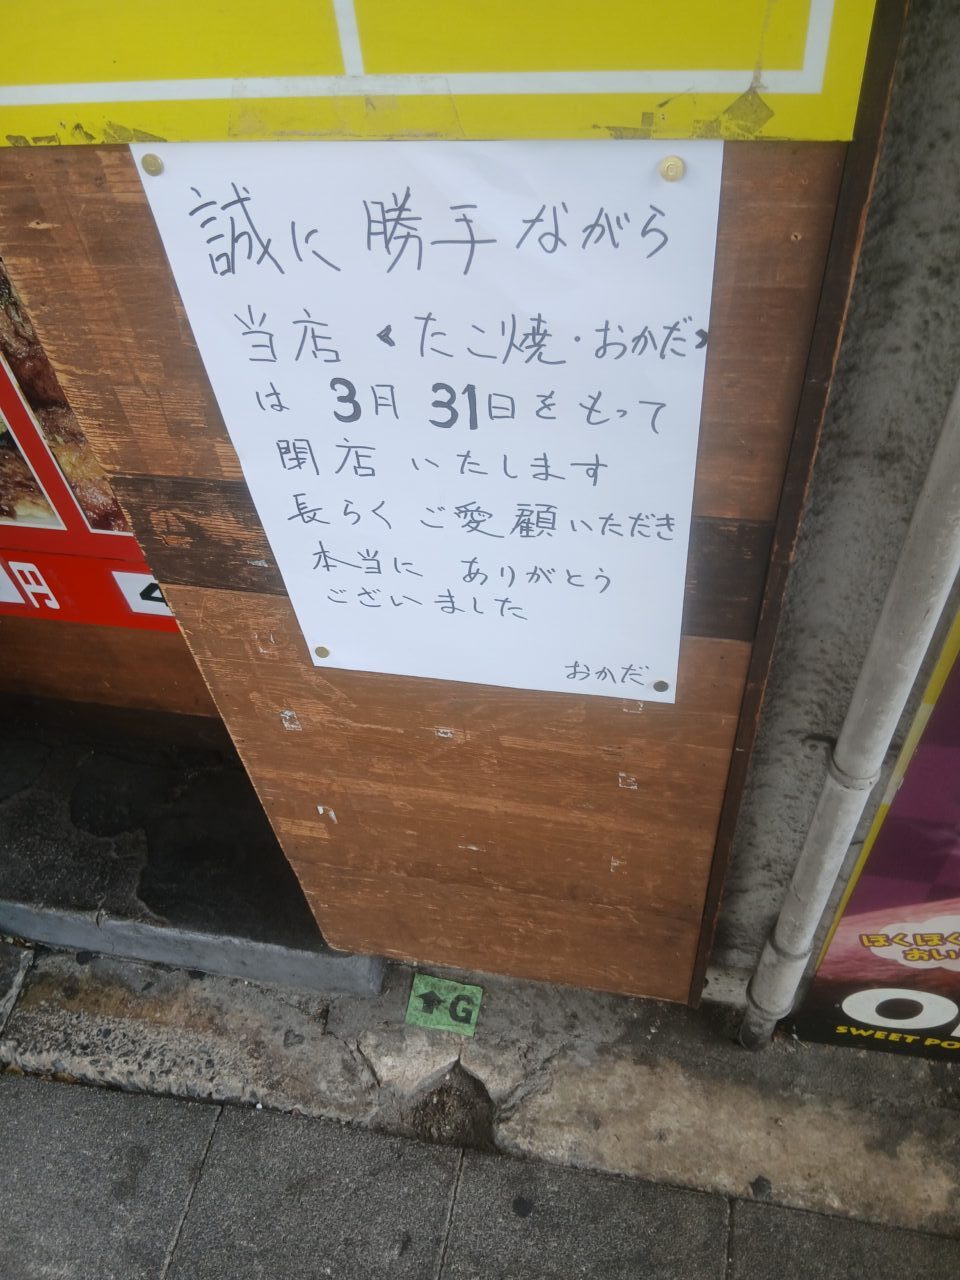 誠に勝手ながら
当店《たこ焼・おかだ》
は3月31日をもって
閉店いたします
長らくご愛顧いただき
本当にありがとう
ございました
おかだ
円
4
↑G
ほくほく
おい
SWEET PO